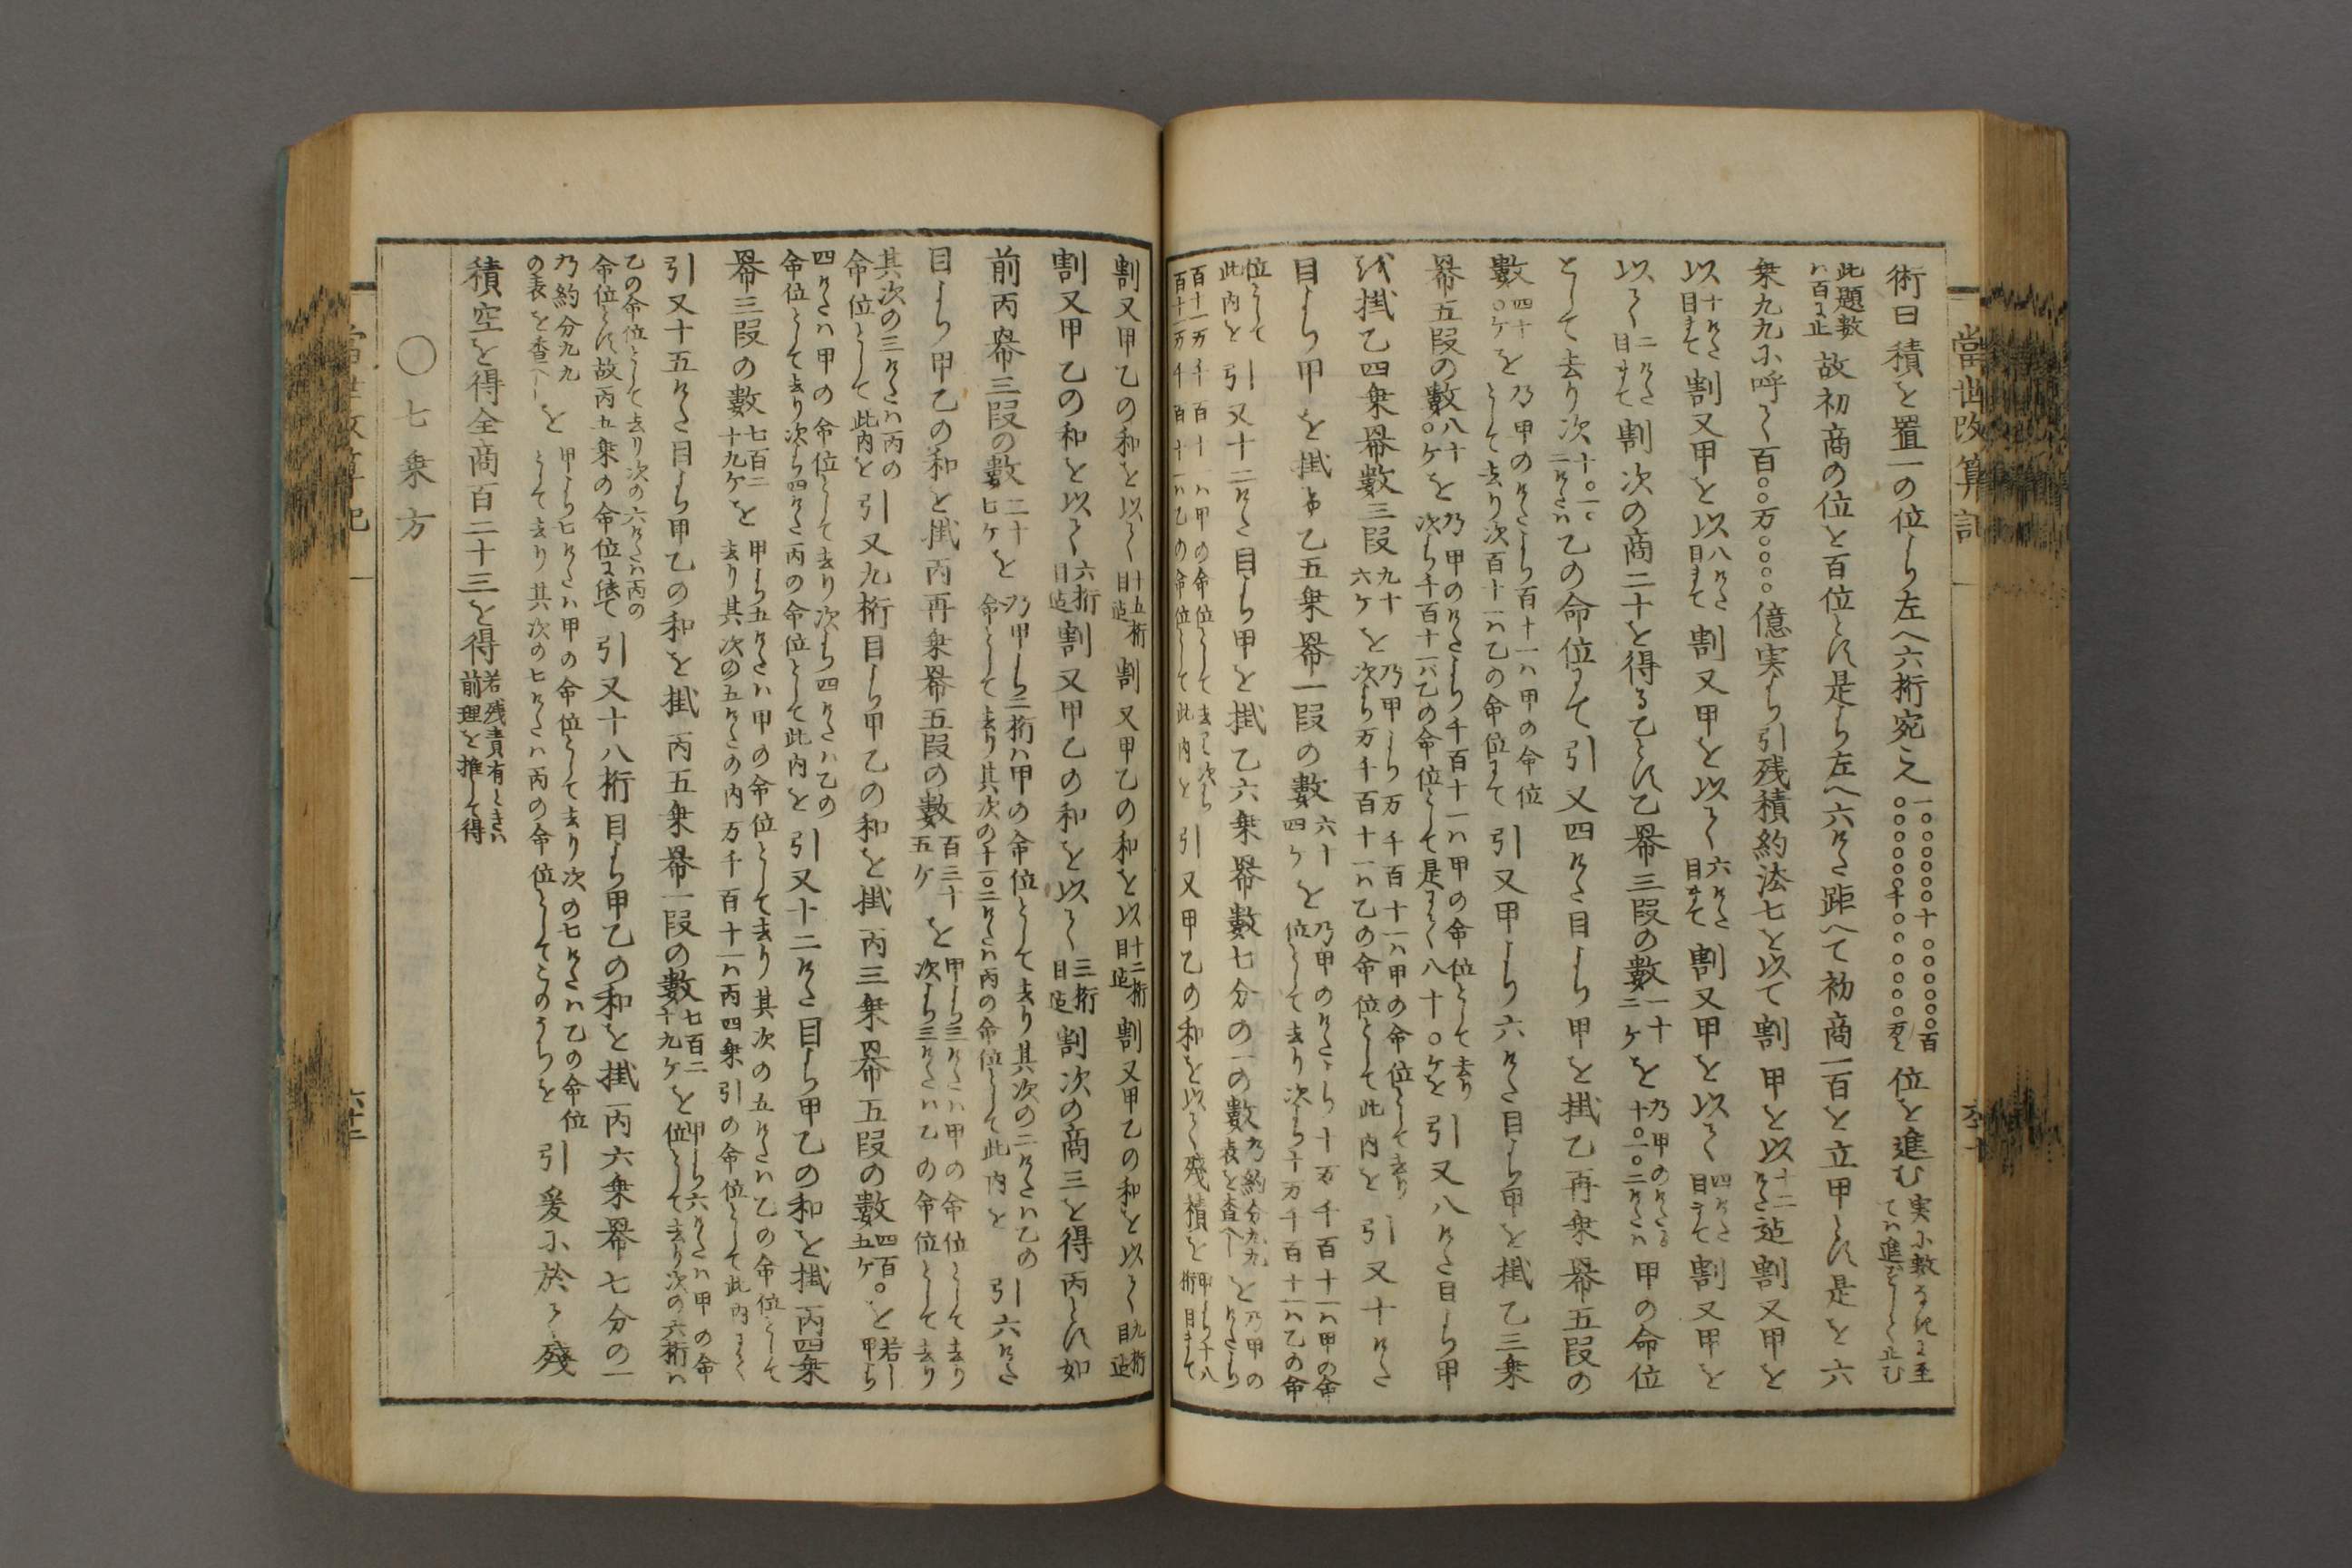 當世改算記
術曰積を置一の位より左へ六桁宛こえ一〇〇〇〇〇〇十〇〇〇〇〇〇百〇〇〇〇〇〇千〇〇〇〇〇〇万と位を進む実に數なきに至ては進ずして止む
此題數ハ百に止故初商の位を百位とす是より左へ六ケタ距へて初商一百を立甲とす是を六
乗九九に呼て百〇〇万〇〇〇〇億実より引残積約法七を以て割甲を以十二ケタ迠割又甲を
以十ケタ目まて割又甲を以八ケタ目まて割又甲を以て六ケタ目まて割又甲を以て四ケタ目まて割又甲を
以て二ケタ目まて割次の商二十を得る乙とす乙冪三段の數一十二ケを乃甲のケタより十〇一〇二ケタハ甲の命位
として去り次十〇一〇二ケタハ乙の命位まて引又四ケタ目より甲を掛乙再乗冪五段の
數四十〇ケを乃甲のケタより百十一ハ甲の命位として去り次百十一ハ乙の命位まて引又甲より六ケタ目より甲を掛乙三乗
冪五段の數八十〇ケを乃甲のケタより千百十一ハ甲の命位として去り次より千百十一ハ乙の命位として是まて八十〇ケを引又八ケタ目より甲
を掛乙四乗冪數三段九十六ケを乃甲より万千百十一ハ甲の命位として去り次より万千百十一ハ乙の命位として此内を引又十ケタ
目より甲を掛け乙五乗冪一段の數六十四ケを乃甲のケタより十万千百十一ハ甲の命位として去り次より十万千百十一ハ乙の命
位として此内を引又十二ケタ目より甲を掛乙六乗冪數七分の一の數乃約分九九の表を査へしを乃甲のケタより
百十一万千百十一ハ甲の命位として去り次より百十一万千百十一ハ乙の命位として此内を引又甲乙の和を以て残積を甲より十八桁目まて
割又甲乙の和を以て十五桁目迠割又甲乙の和を以十二桁目迠割又甲乙の和を以て九桁目迠
割又甲乙の和を以て六桁目迠割又甲乙の和を以て三桁目迠割次の商三を得丙とす如
前丙冪三段の數二十七ケを乃甲より二桁ハ甲の命位として去り其次の二ケタハ乙の命として去り其次の十一〇二ケタハ丙の命位として此内を引六ケタ
目より甲乙の和を掛丙再乗冪五段の數百三十五ケを甲より三ケタハ甲の命位として去り次より三ケタハ乙の命位として去り
其次の三ケタハ丙の命位として此内を引又九桁目より甲乙の和を掛丙三乗冪五段の數四百〇五ケを若し甲より
四ケタハ甲の命位として去り次より四ケタハ乙の命位として去り次より四ケタ丙の命位として此内を引又十二ケタ目より甲乙の和を掛丙四乗
冪三段の數七百二十九ケを甲より五ケタハ甲の命位として去り其次の五ケタハ乙の命位として去り其次の五ケタの内万千百十一ハ丙四乗引の命位として此内まて
引又十五ケタ目より甲乙の和を掛丙五乗冪一段の數七百二十九ケを甲より六ケタハ甲の命位として去り次の六桁ハ
乙の命位として去り次の六ケタハ丙の命位とす故丙五乗の命位まて引又十八桁目より甲乙の和を掛丙六乗冪七分の一
乃約分九九の表を査へしを甲より七ケタハ甲の命位として去り次の七ケタハ乙の命位として去り其次の七ケタハ丙の命位としてこのうちを引爰に於て殘
積空を得全商百二十三を得若残責有ときハ前理を推して得
〇七乗方